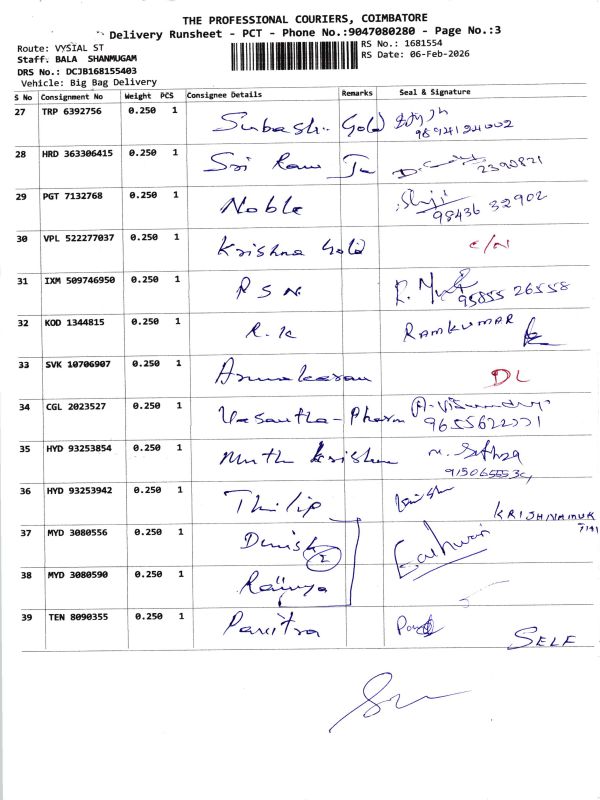 THE PROFESSIONAL COURIERS, COIMBATORE
Delivery Runsheet - PCT - Phone No.:9047080280 - Page No.:3
Route: VYSIAL ST
Staff. BALA SHANMUGAM
DRS No.: DCJB168155403
Vehicle: Big Bag Delivery
RS No.: 1681554
RS Date: 06-Feb-2026
S No Consignment No Weight PCS Consignee Details Remarks Seal & Signature
27 TRP 6392756 0.250 1 Subash Gold
28 HRD 363306415 0.250 1 Sri Ram 2390821
29 PGT 7132768 0.250 1 Noble 98436 32902
30 VPL 522277037 0.250 1 Krishna Gold C/N
31 IXM 509746950 0.250 1 R S N. 95855 26558
32 KOD 1344815 0.250 1 R. K RAMKUMAR
33 SVK 10706907 0.250 1 DL
34 CGL 2023527 0.250 1 Vasantha - Pharm
35 HYD 93253854 0.250 1 Muth Krishna
36 HYD 93253942 0.250 1 Thilip
37 MYD 3080556 0.250 1 Dinish
38 MYD 3080590 0.250 1 Ramya
39 TEN 8090355 0.250 1 Pavitra SELF